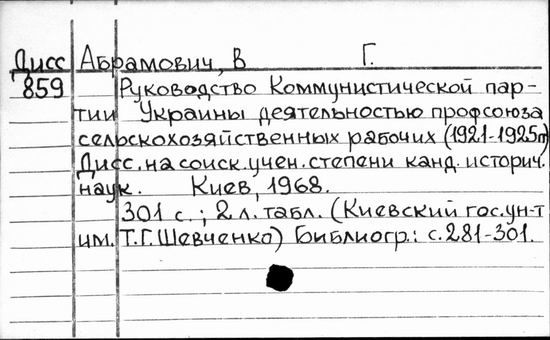 Дисс Абрамович, В Г.
859 Руководство Коммунистической пар-
тии Украины деятельностью профсоюза
сельскохозяйственных рабочих (1921-1925гг)
Дисс. на соиск. учен. степени канд. историч.
наук. Киев, 1968.
301 с.; 2 л. табл. (Киевский гос. ун-т
им. Т.Г. Шевченко) Библиогр.: с. 281-301.